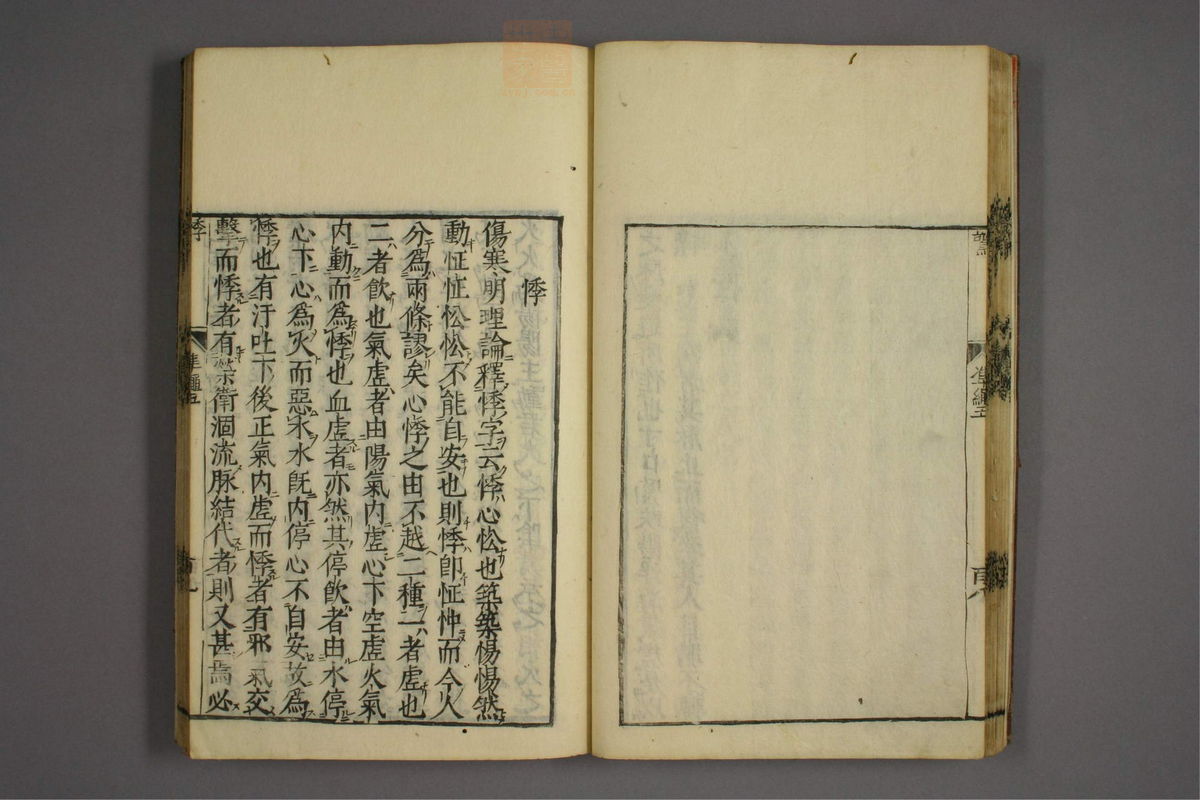 悸
傷寒明理論釋悸字云悸心忪也築築惕惕然
動怔怔忪忪不能自安也則悸卽怔忡而今人
分爲兩條謬矣心悸之由不越二種一者虛也
二者飮也氣虛者由陽氣內虛心下空虛火氣
內動而爲悸也血虛者亦然其停飮者由水停
心下心爲火而惡水水旣內停心不自安故爲
悸也有汗吐下後正氣內虛而悸者有邪氣交
擊而悸者有榮衛涸流脉結代者則又甚焉必
悸